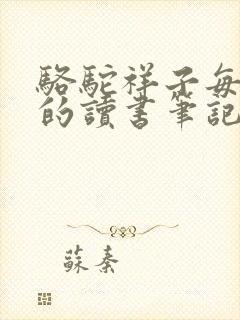 駱駝祥子每
的讀書筆記
蘇秦